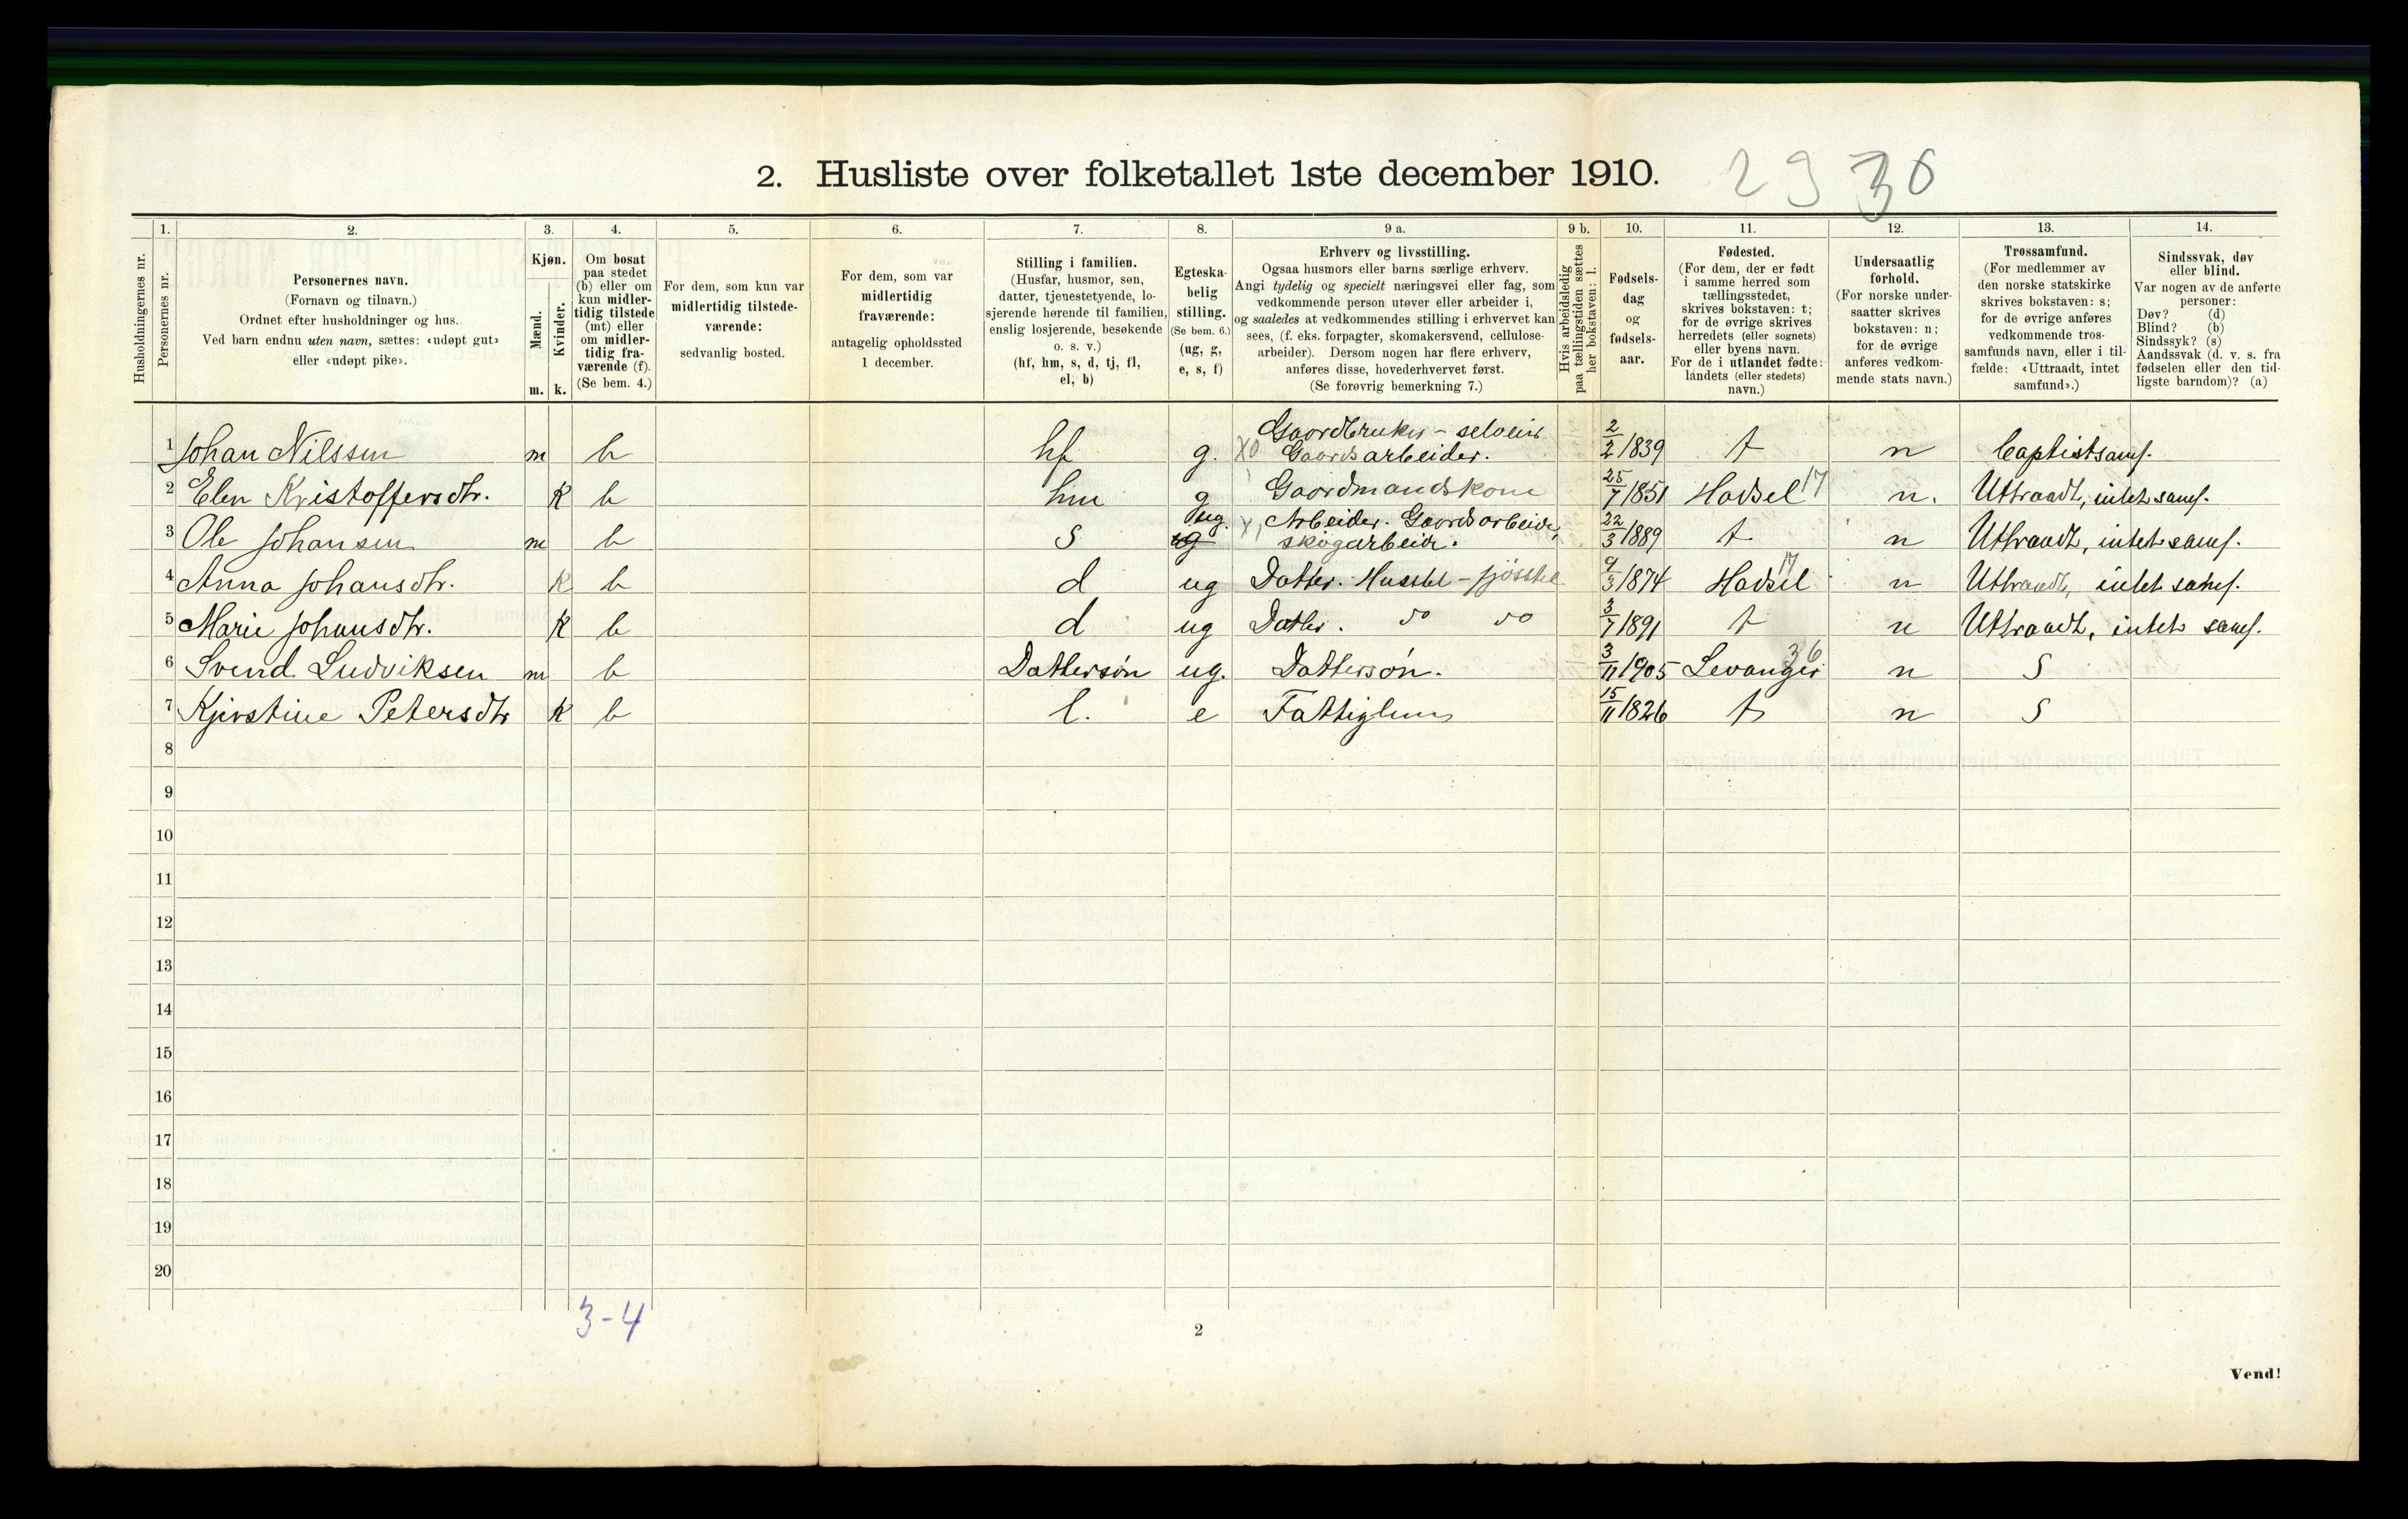 2. Husliste over folketallet 1ste december 1910.
29 30
Husholdningernes nr.
1. Personernes nr.
2.
Personernes navn.
(Fornavn og tilnavn.)
Ordnet efter husholdninger og hus.
Ved barn endnu uten navn, sættes: «udøpt gut»
eller «udøpt pike».
3.
Kjøn.
Mænd. m.
Kvinder. k.
4.
Om bosat
paa stedet
(b) eller om
kun midler-
tidig tilstede
(mt) eller
om midler-
tidig fra-
værende (f).
(Se bem. 4.)
5.
For dem, som kun var
midlertidig tilstede-
værende:
sedvanlig bosted.
6.
For dem, som var
midlertidig
fraværende:
antagelig opholdssted
1 december.
7.
Stilling i familien.
(Husfar, husmor, søn,
datter, tjenestetyende, lo-
sjerende hørende til familien,
enslig losjerende, besøkende
o. s. v.)
(hf, hm, s, d, tj, fl,
el, b)
8.
Egteska-
belig
stilling.
(Se bem. 6.)
(ug, g,
e, s, f)
9 a.
Erhverv og livsstilling.
Ogsaa husmors eller barns særlige erhverv.
Angi tydelig og specielt næringsvei eller fag, som
vedkommende person utøver eller arbeider i,
og saaledes at vedkommendes stilling i erhvervet kan
sees, (f. eks. forpagter, skomakersvend, cellulose-
arbeider). Dersom nogen har flere erhverv,
anføres disse, hovederhvervet først.
(Se forøvrig bemerkning 7.)
9 b.
Hvis arbeidsledig
paa tællingstiden sættes
her bokstaven: l.
10.
Fødsels-
dag
og
fødsels-
aar.
11.
Fødested.
(For dem, der er født
i samme herred som
tællingsstedet,
skrives bokstaven: t;
for de øvrige skrives
herredets (eller sognets)
eller byens navn.
For de i utlandet fødte:
landets (eller stedets)
navn.)
12.
Undersaatlig
forhold.
(For norske under-
saatter skrives
bokstaven: n;
for de øvrige
anføres vedkom-
mende stats navn.)
13.
Trossamfund.
(For medlemmer av
den norske statskirke
skrives bokstaven: s;
for de øvrige anføres
vedkommende tros-
samfunds navn, eller i til-
fælde: «Uttraadt, intet
samfund».)
14.
Sindssvak, døv
eller blind.
Var nogen av de anførte
personer:
Døv? (d)
Blind? (b)
Sindssyk? (s)
Aandssvak (d. v. s. fra
fødselen eller den tid-
ligste barndom)? (a)
1 Johan Nilssen m b hf g. X0 Gaardbruker - selveier Gaardsarbeider. 2/2 1839 t n Baptistsamf.
2 Elen Kristoffersdtr. K b hm g Gaardmandskone 25/7 1851 Hadsel 17 n. Uttraadt, intet samf.
3 Ole Johansen m b s ug. Arbeider. Gaardsarbeider, skogarbeide. 22/3 1889 t n Uttraadt, intet samf.
4 Anna Johansdtr. K b d ug Datter. Husstel - fjøsstel 9/3 1874 Hadsel 17 n Uttraadt, intet samf.
5 Marie Johansdtr. K b d ug Datter. do do 3/7 1891 t n Uttraadt, intet samf.
6 Svend Ludviksen m b Dattersøn ug. Dattersøn. 3/11 1905 Levanger 36 n S
7 Kjerstine Petersdtr K b l. e Fattiglem 15/11 1826 t n S
8
9
10
11
12
13
14
15
16
17
18
19
20
3-4
2
Vend!